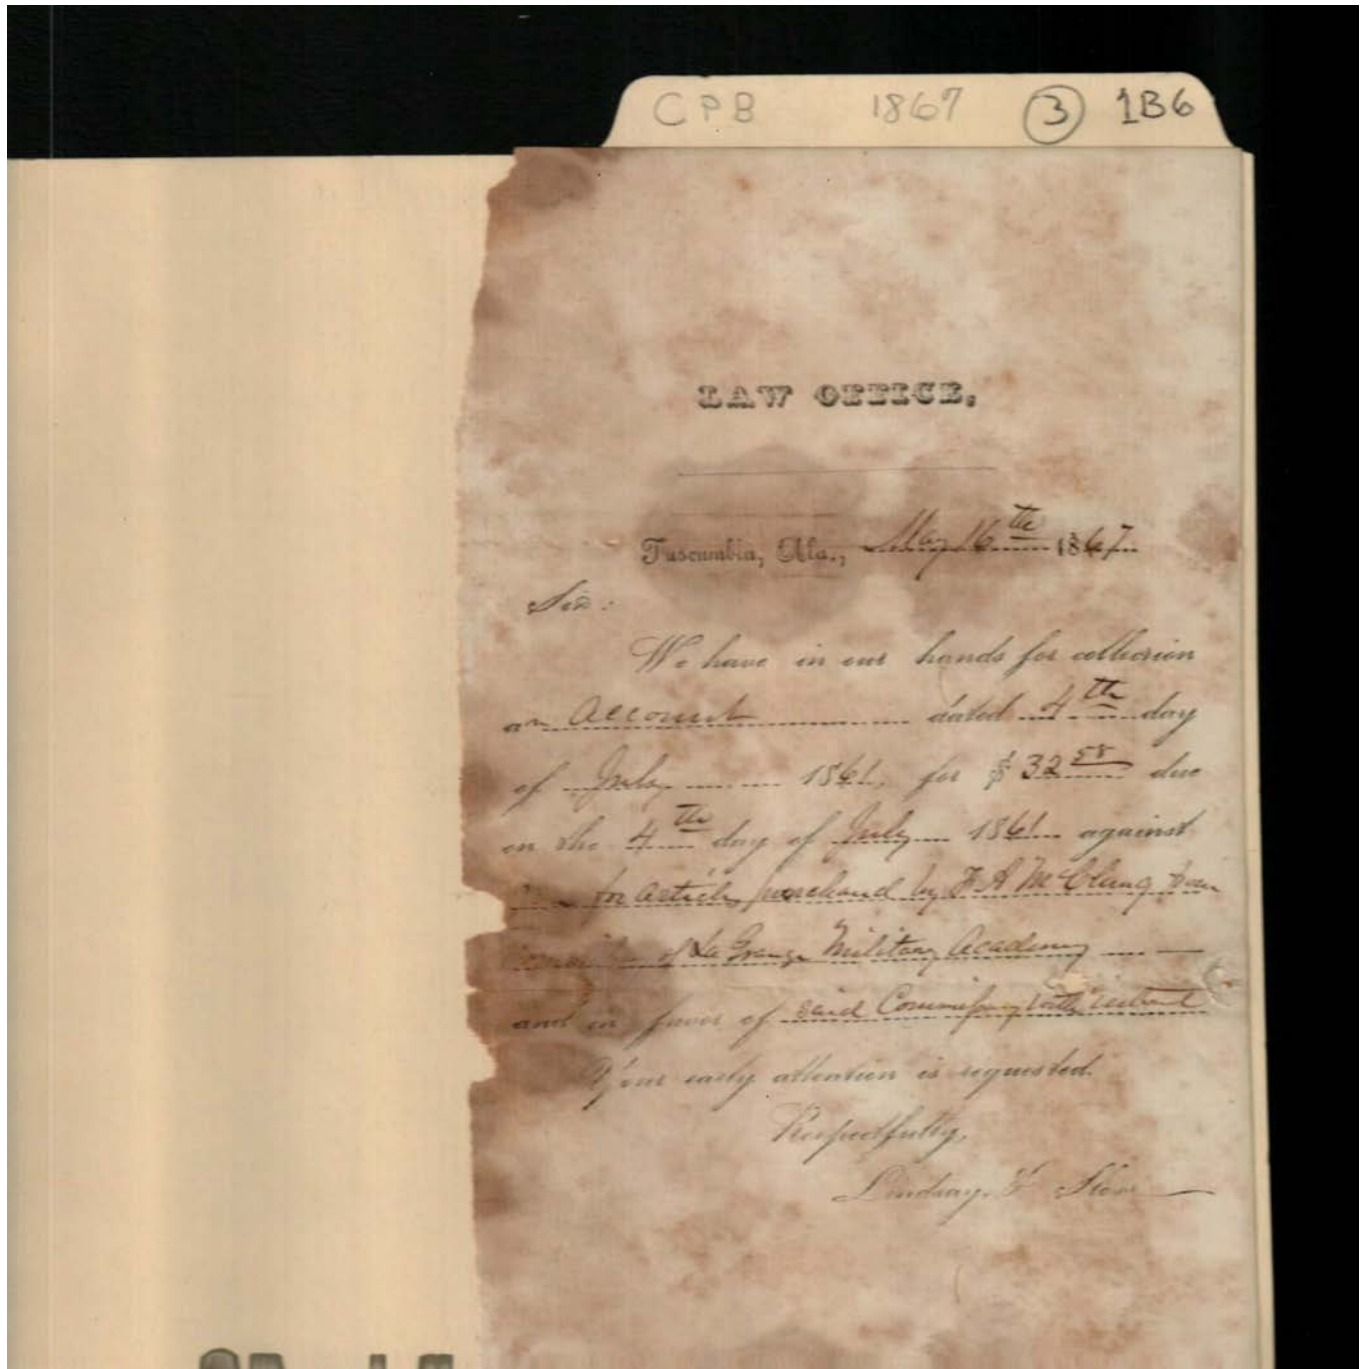 CPB 1867 3 1B6
LAW OFFICE,
Tuscumbia, Ala., May 16th 1867
Sir:
We have in our hands for collection
an Account dated 4th day
of July 1861, for $32 58 due
on the 4th day of July 1861 against
for article purchased by F A McClung from
of La Grange Military Academy
and in favor of said Commissary with interest
Your early attention is requested.
Respectfully,
Lindsay, &